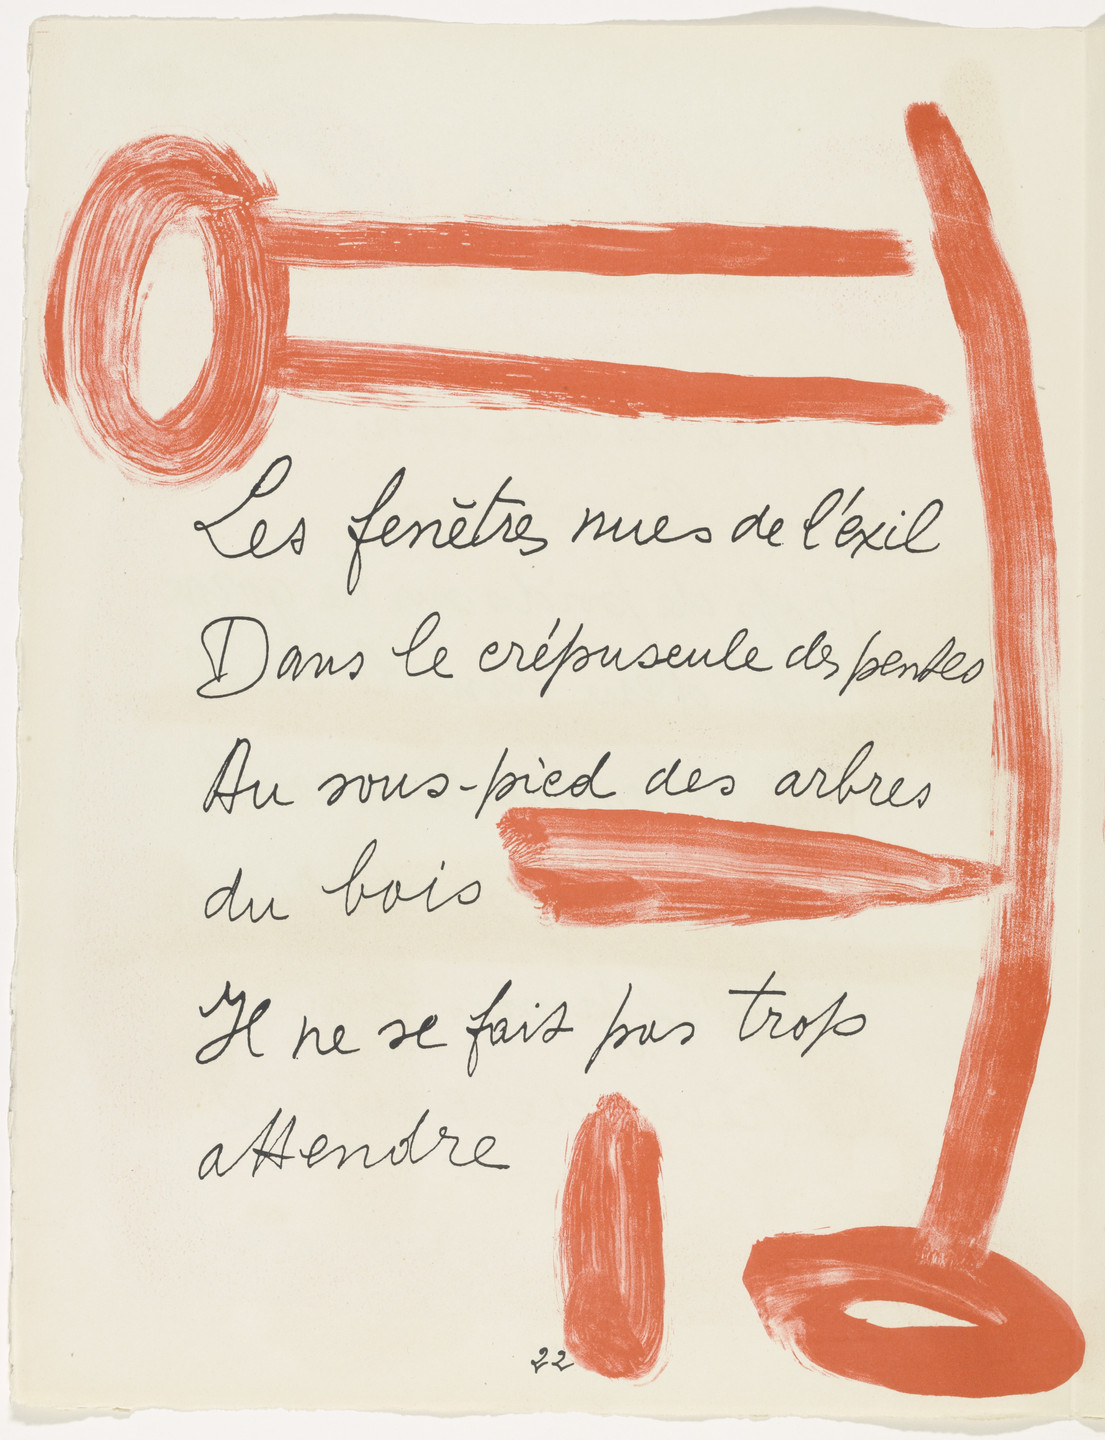 Les fenêtres nues de l'éxil
Dans le crépuscule des pentes
Au sous-pied des arbres
du bois
Il ne se fait pas trop
attendre
22